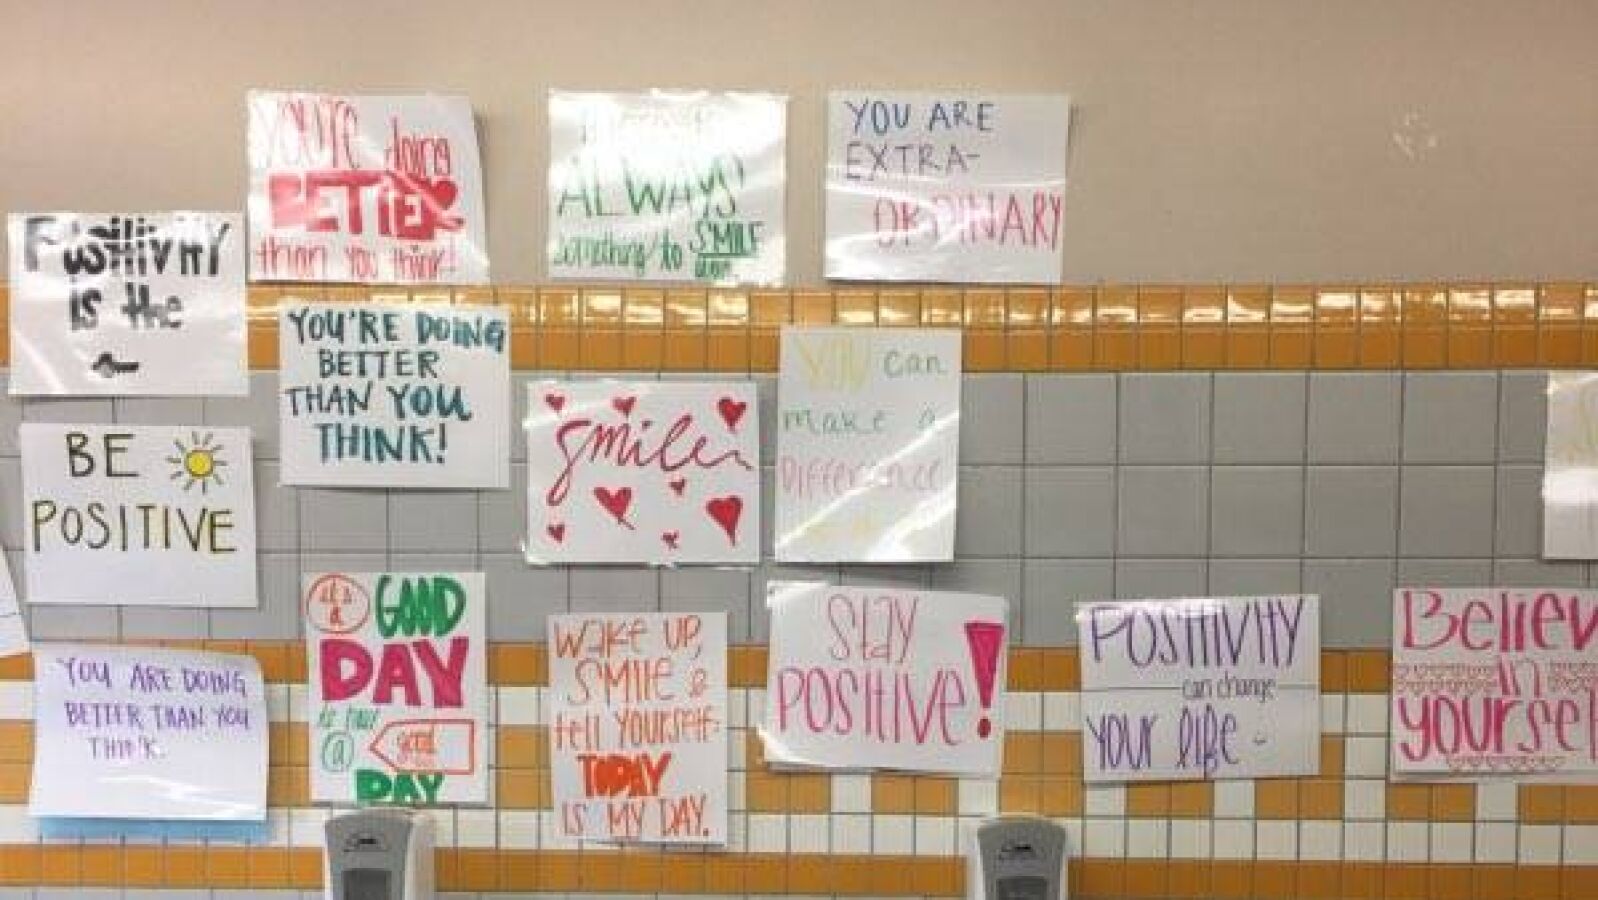 YOU'RE doing
BETTER
than you think!
ALWAYS
something to SMILE
YOU ARE
EXTRA-
ORDINARY
POSITIVITY
is the
YOU'RE DOING
BETTER
THAN YOU
THINK!
smile
YOU can
make a
DIFFERENCE
BE
POSITIVE
YOU ARE DOING
BETTER THAN YOU
THINK.
it's
a
GOOD
DAY
a
good
DAY
Wake UP,
SMILE &
tell YOURSELF:
TODAY
IS MY DAY.
Stay
POSITIVE!
POSITIVITY
can change
YOUR life
Believ
in
yoursel